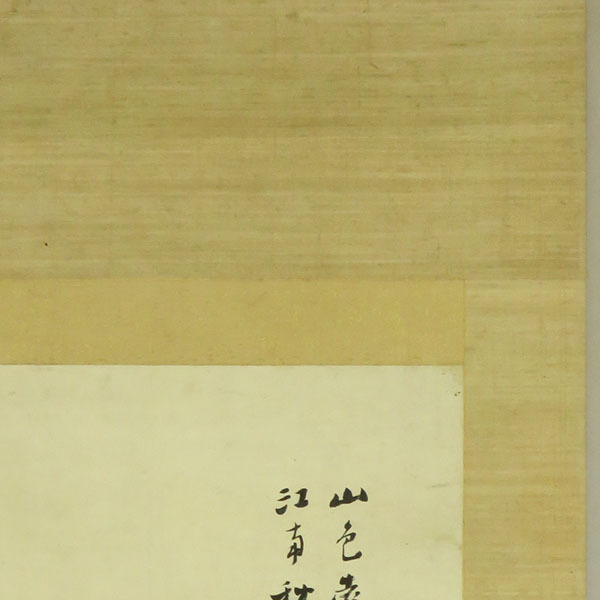 山色
江南秋